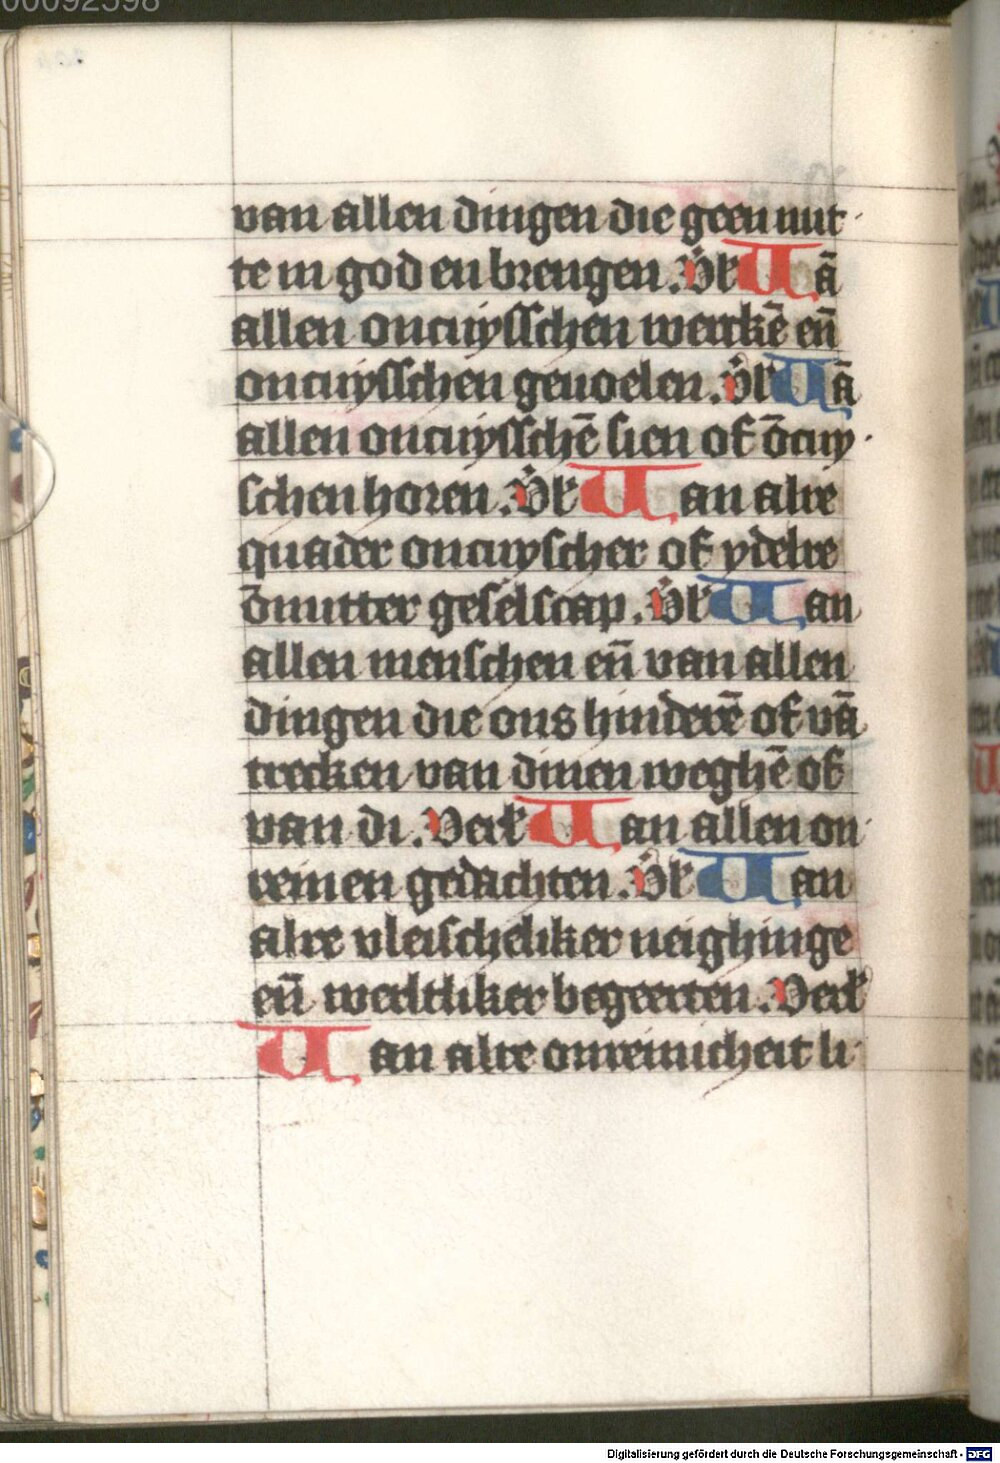 00092598
van allen dingen die geen nut
te in god en brengen. V̓k Uā
allen oncuysschen werckē en̄
oncuysschen geuoelen. V̓k Uā
allen oncuysschē sien of ōcuy
schen horen. V̓k Uan alre
quader oncuyscher of ydelre
ōnutter geselscap. V̓k Uan
allen menschen en̄ van allen
dingen die ons hinderē of vā
trecken van dinen weghē of
van di. Verk Uan allen on
reinen gedachten. V̓k Uan
alre vleischeliker neighinge
en̄ werltliker begeerten. Verk̓
Uan alre onreinicheit li
Digitalisierung gefördert durch die Deutsche Forschungsgemeinschaft - DFG